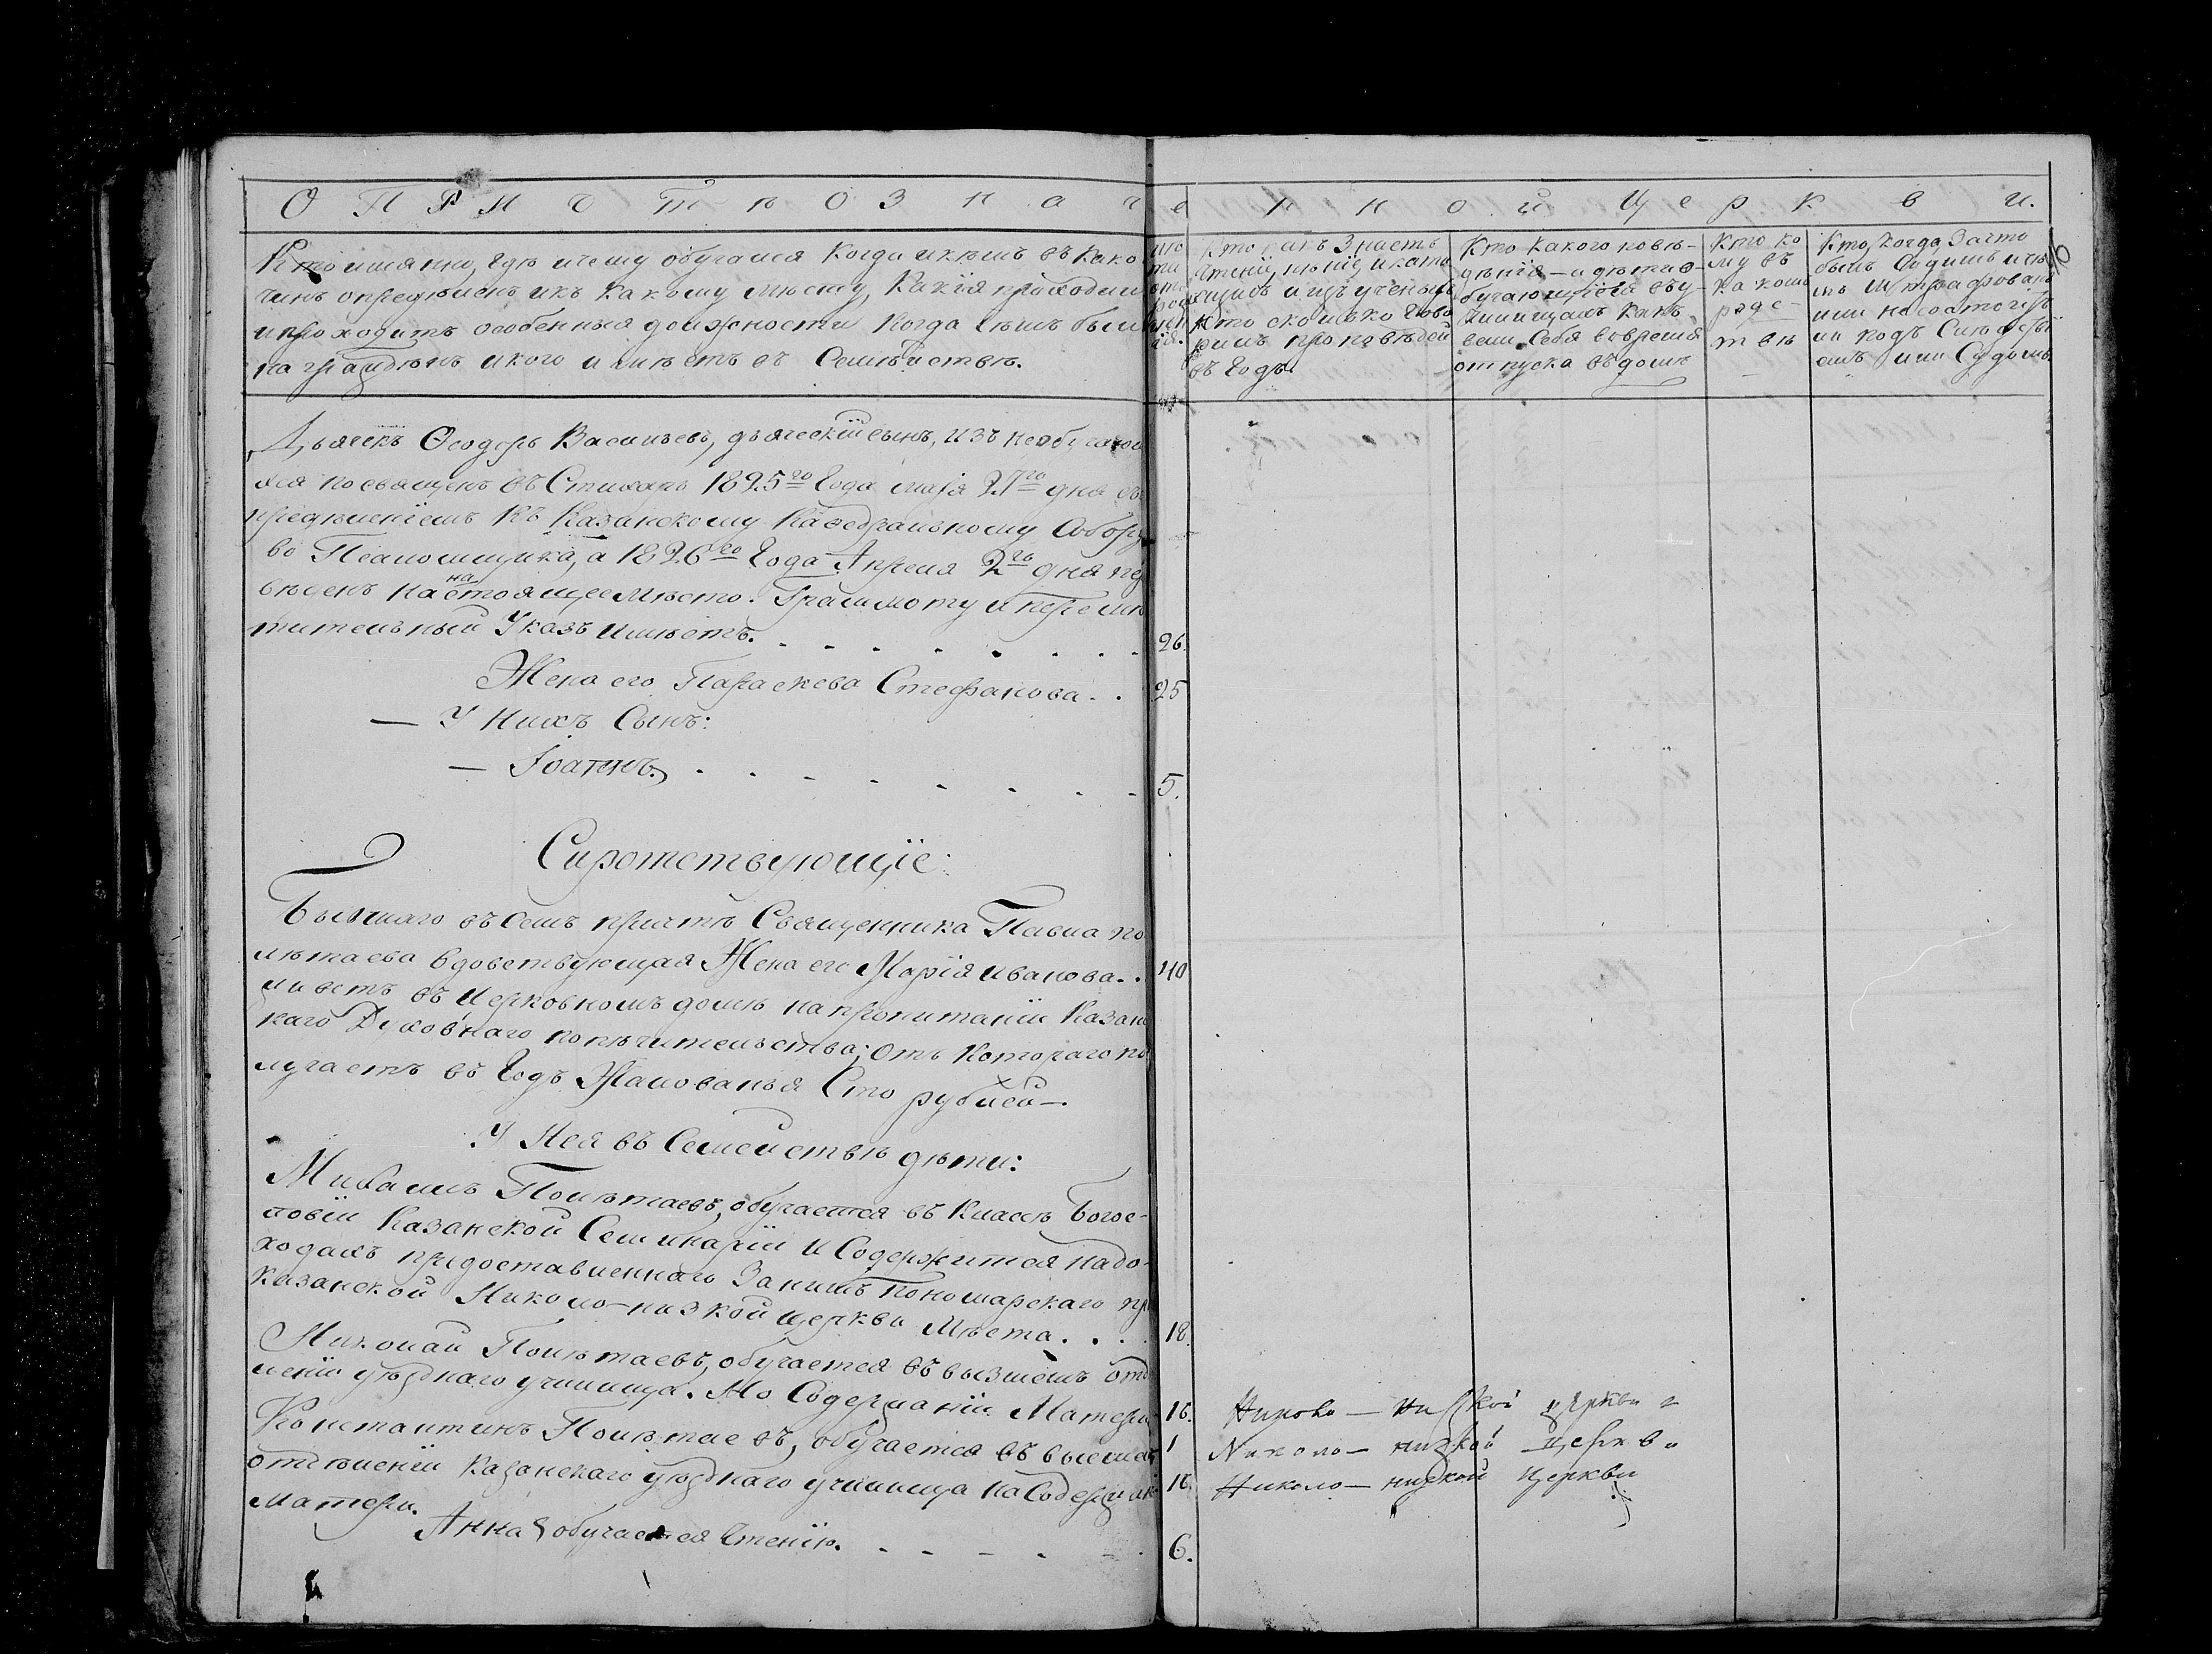 О П Р И Ч Т Ѣ О З Н А Ч Е Н Н О Й Ц Е Р К В И.
Кто имянно, гдѣ и чему обучался когда и кѣмъ въ како
чинъ опредѣленъ и къ какому мѣсту, какія проходил
и проходитъ особенныя должности когда чѣмъ был
награждѣнъ и кого имѣетъ въ Семѣйствѣ.
Кто какъ знаетъ
чтеніе, пѣніе, и кати
хизисъ и изъ ученыхъ
кто сколько гово
рилъ проповѣдей
въ годъ.
Кто какого повѣ-
дѣнія - и дѣти о-
бучающіяся въ у-
чилищахъ какъ
вели себя во время
отпуска въ домѣ
Кто ко
му въ
какомъ
родс-
твѣ
Кто, когда, за что
былъ судимъ и чѣ
мъ штрафованъ
или не состоитъ
ли подъ слѣдств
емъ или судомъ
Дьячекъ Ѳеодоръ Васильевъ, дьяческій сынъ, изъ необучавш
ихся посвященъ въ Стихарь 1825го года маія 27го дня съ
предѣленіемъ къ Казанскому Каѳедральному Собору
во Псаломщика, а 1826го года Апреля 2го дня пе
вѣденъ на настоящее мѣсто. Грамоту и перемѣ
тительный Указъ имѣетъ. 26.
Жена его Параскева Стефанова. . 25
— У Нихъ Сынъ:
— Іоаннъ. 5.
Сиротствующіе:
Бывшаго въ семъ причтѣ Священника Павла По
лѣтаева вдовствующая Жена его Марія Иванова. . 40
живетъ въ Церковномъ домѣ на пропитаніи Казан
скаго Духовнаго попѣчительства; отъ Котораго по
лучаетъ въ годъ Жалованья Сто рублей.—
У Нея въ Семействѣ дѣти:
Михаилъ Полѣтаевъ, обучается въ классѣ Богос-
ловіи Казанской Семинаріи и Содержится на до-
ходахъ предоставленнаго За нимъ Пономарскаго пр
Казанской Николо-низкой церкви Мѣста. . . . 18
Николай Полѣтаевъ, обучается въ вызшемъ отд
леніи уѣзднаго училища. На Содержаніи Матери 16.
Константинъ Полѣтаевъ, обучается въ высшем
отдѣленіи Казанскаго уѣзднаго училища на Содержан
матери.
Анна обучается Чтенію. 6.
Николо — низкой церкви
Николо — низкой церкви
Николо — низкой церкви